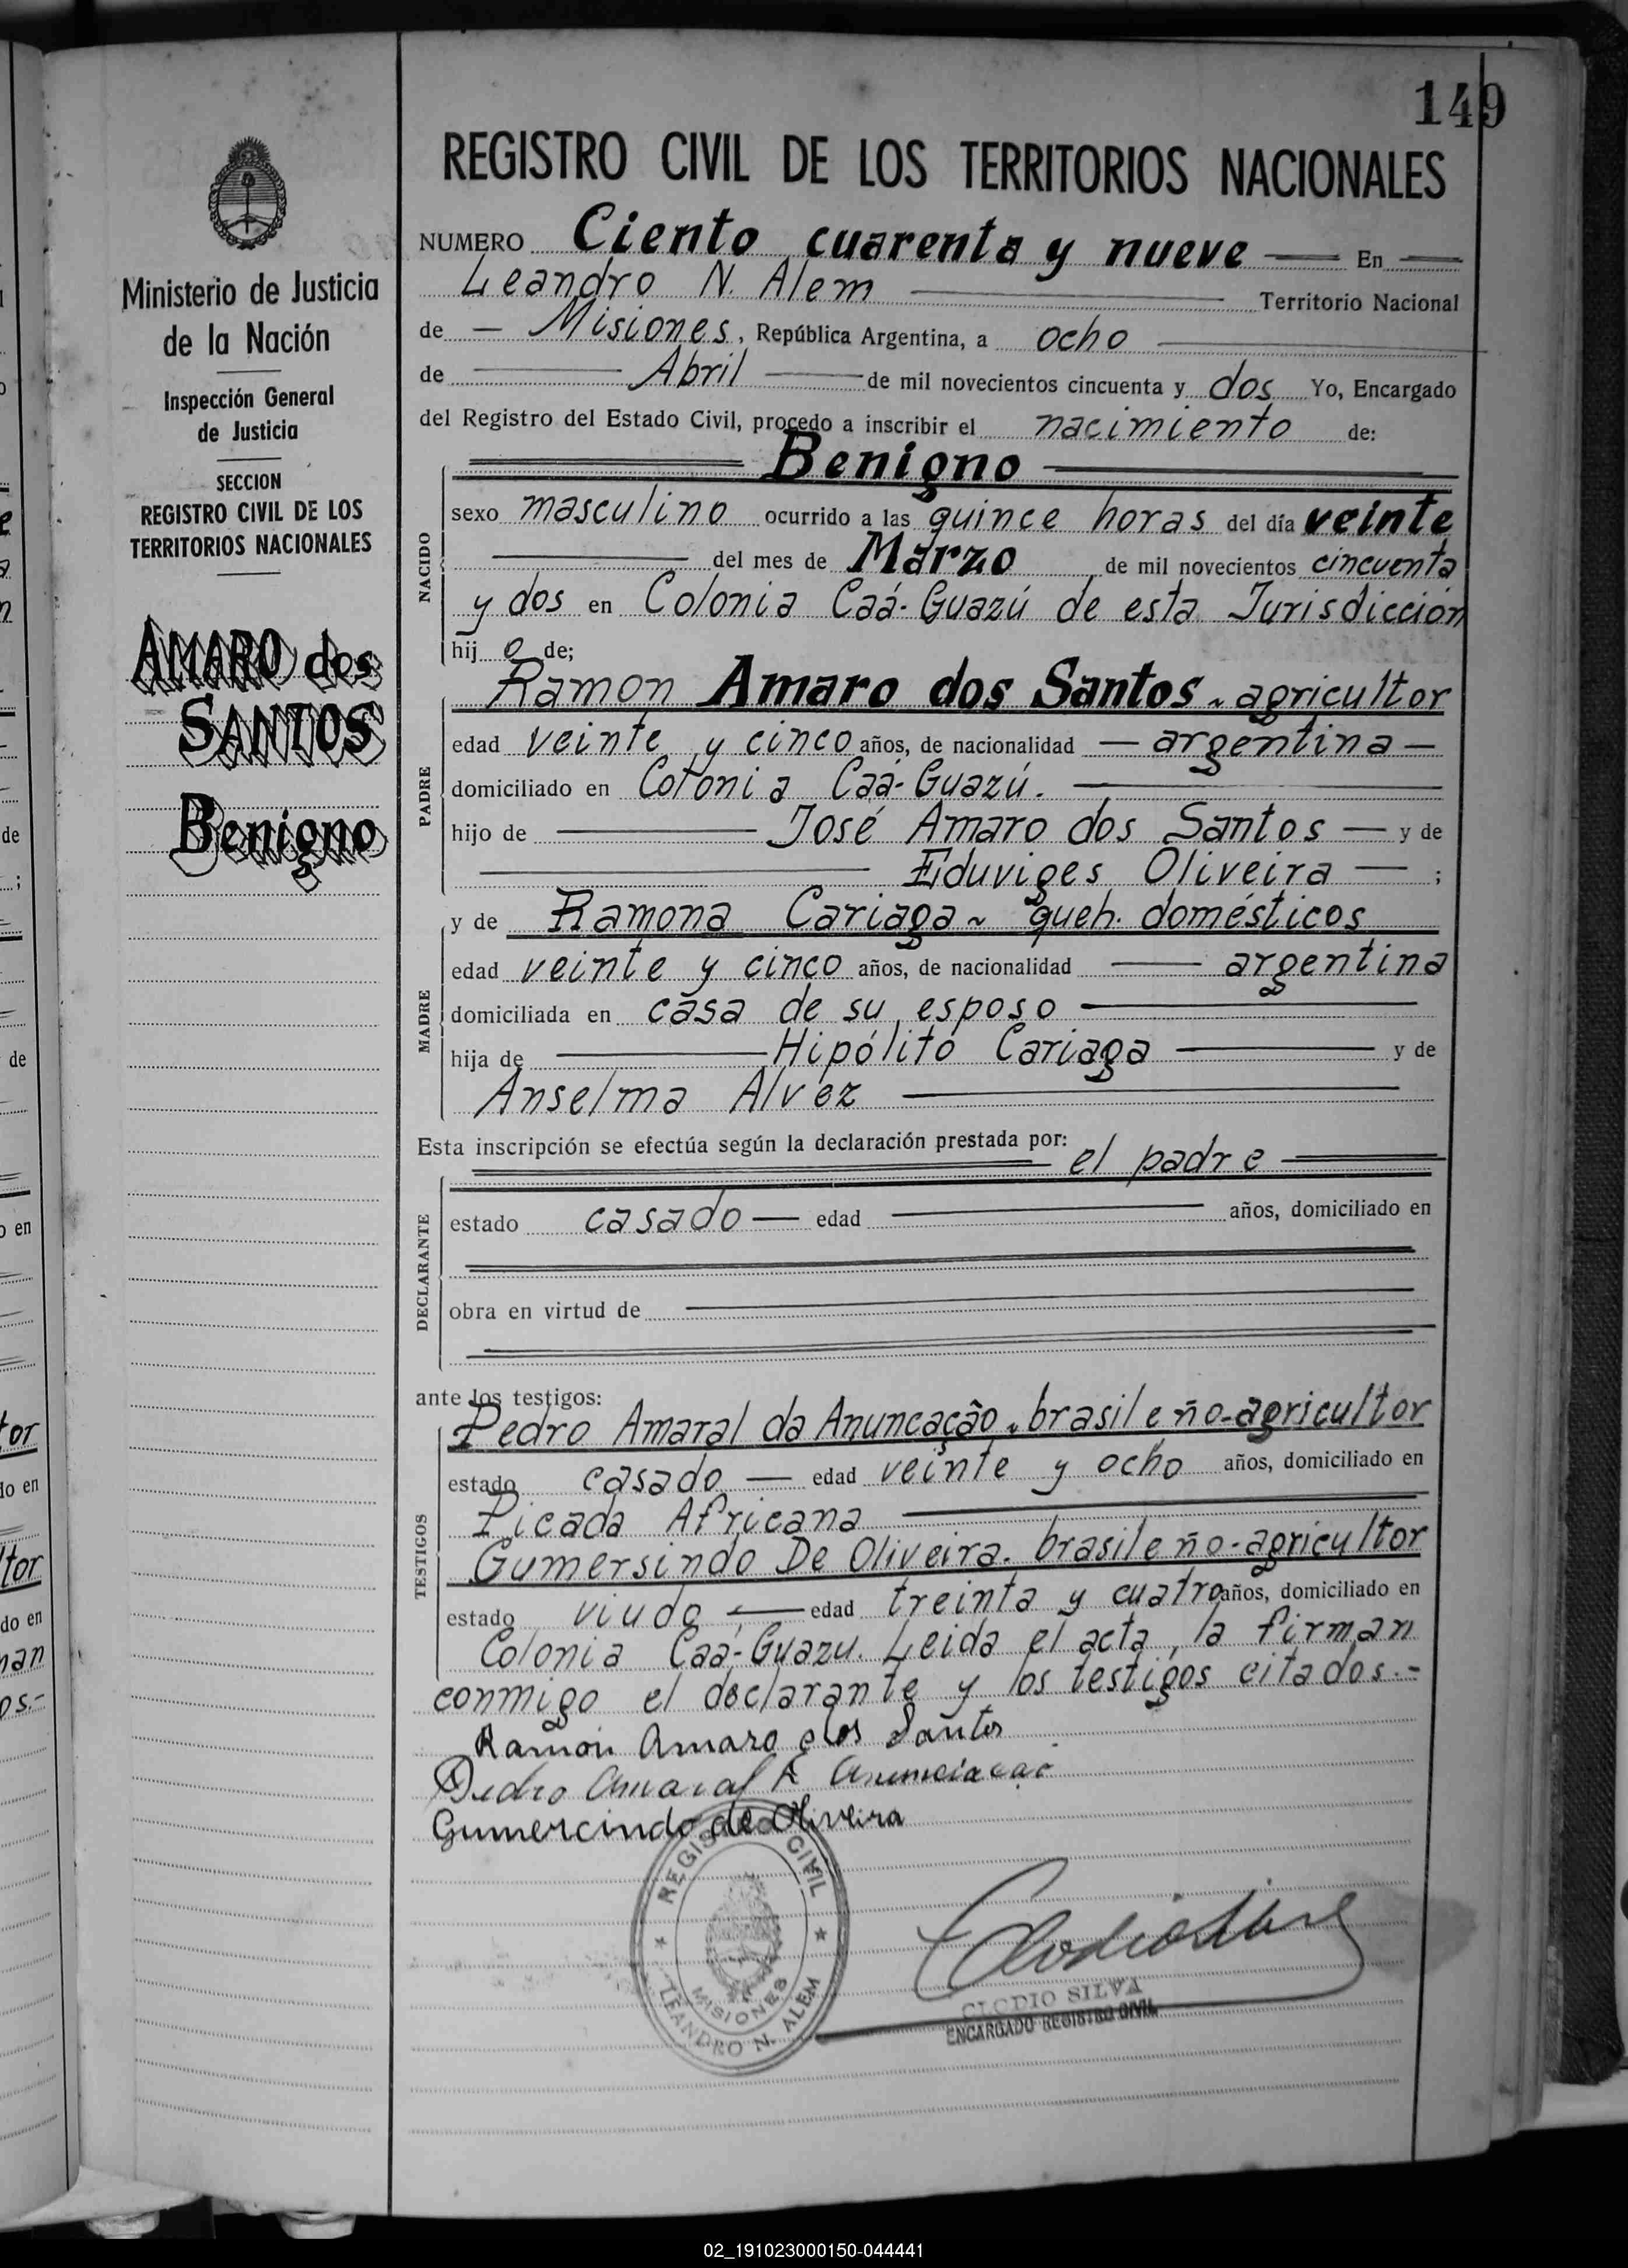 149
REGISTRO CIVIL DE LOS TERRITORIOS NACIONALES
Ministerio de Justicia
de la Nación
Inspección General
de Justicia
SECCION
REGISTRO CIVIL DE LOS
TERRITORIOS NACIONALES
AMARO dos
SANTOS
Benigno
NUMERO Ciento cuarenta y nueve En
Leandro N. Alem Territorio Nacional
de Misiones, República Argentina, a ocho
de Abril de mil novecientos cincuenta y dos Yo, Encargado
del Registro del Estado Civil, procedo a inscribir el nacimiento de:
Benigno
NACIDO
sexo masculino ocurrido a las quince horas del día veinte
del mes de Marzo de mil novecientos cincuenta
y dos en Colonia Caá-Guazú de esta Jurisdicción
hij o de;
PADRE
Ramon Amaro dos Santos - agricultor
edad veinte y cinco años, de nacionalidad argentina
domiciliado en Colonia Caá-Guazú.
hijo de José Amaro dos Santos y de
Eduviges Oliveira ;
MADRE
y de Ramona Cariaga - queh. domésticos
edad veinte y cinco años, de nacionalidad argentina
domiciliada en casa de su esposo
hija de Hipólito Cariaga y de
Anselma Alvez
Esta inscripción se efectúa según la declaración prestada por:
el padre
DECLARANTE
estado casado edad años, domiciliado en
obra en virtud de
ante los testigos:
TESTIGOS
Pedro Amaral da Anuncação. brasileño-agricultor
estado casado edad veinte y ocho años, domiciliado en
Picada Africana
Gumersindo De Oliveira. brasileño-agricultor
estado viudo edad treinta y cuatro años, domiciliado en
Colonia Caá-Guazu. Leida el acta, la firman
conmigo el declarante y los testigos citados.-
Ramon Amaro dos Santos
Pedro Amaral A Anunciacao
Gumercindo de Oliveira
REGISTRO CIVIL
MISIONES
LEANDRO N. ALEM
Clodio Silva
CLODIO SILVA
ENCARGADO REGISTRO CIVIL
02_191023000150-044441